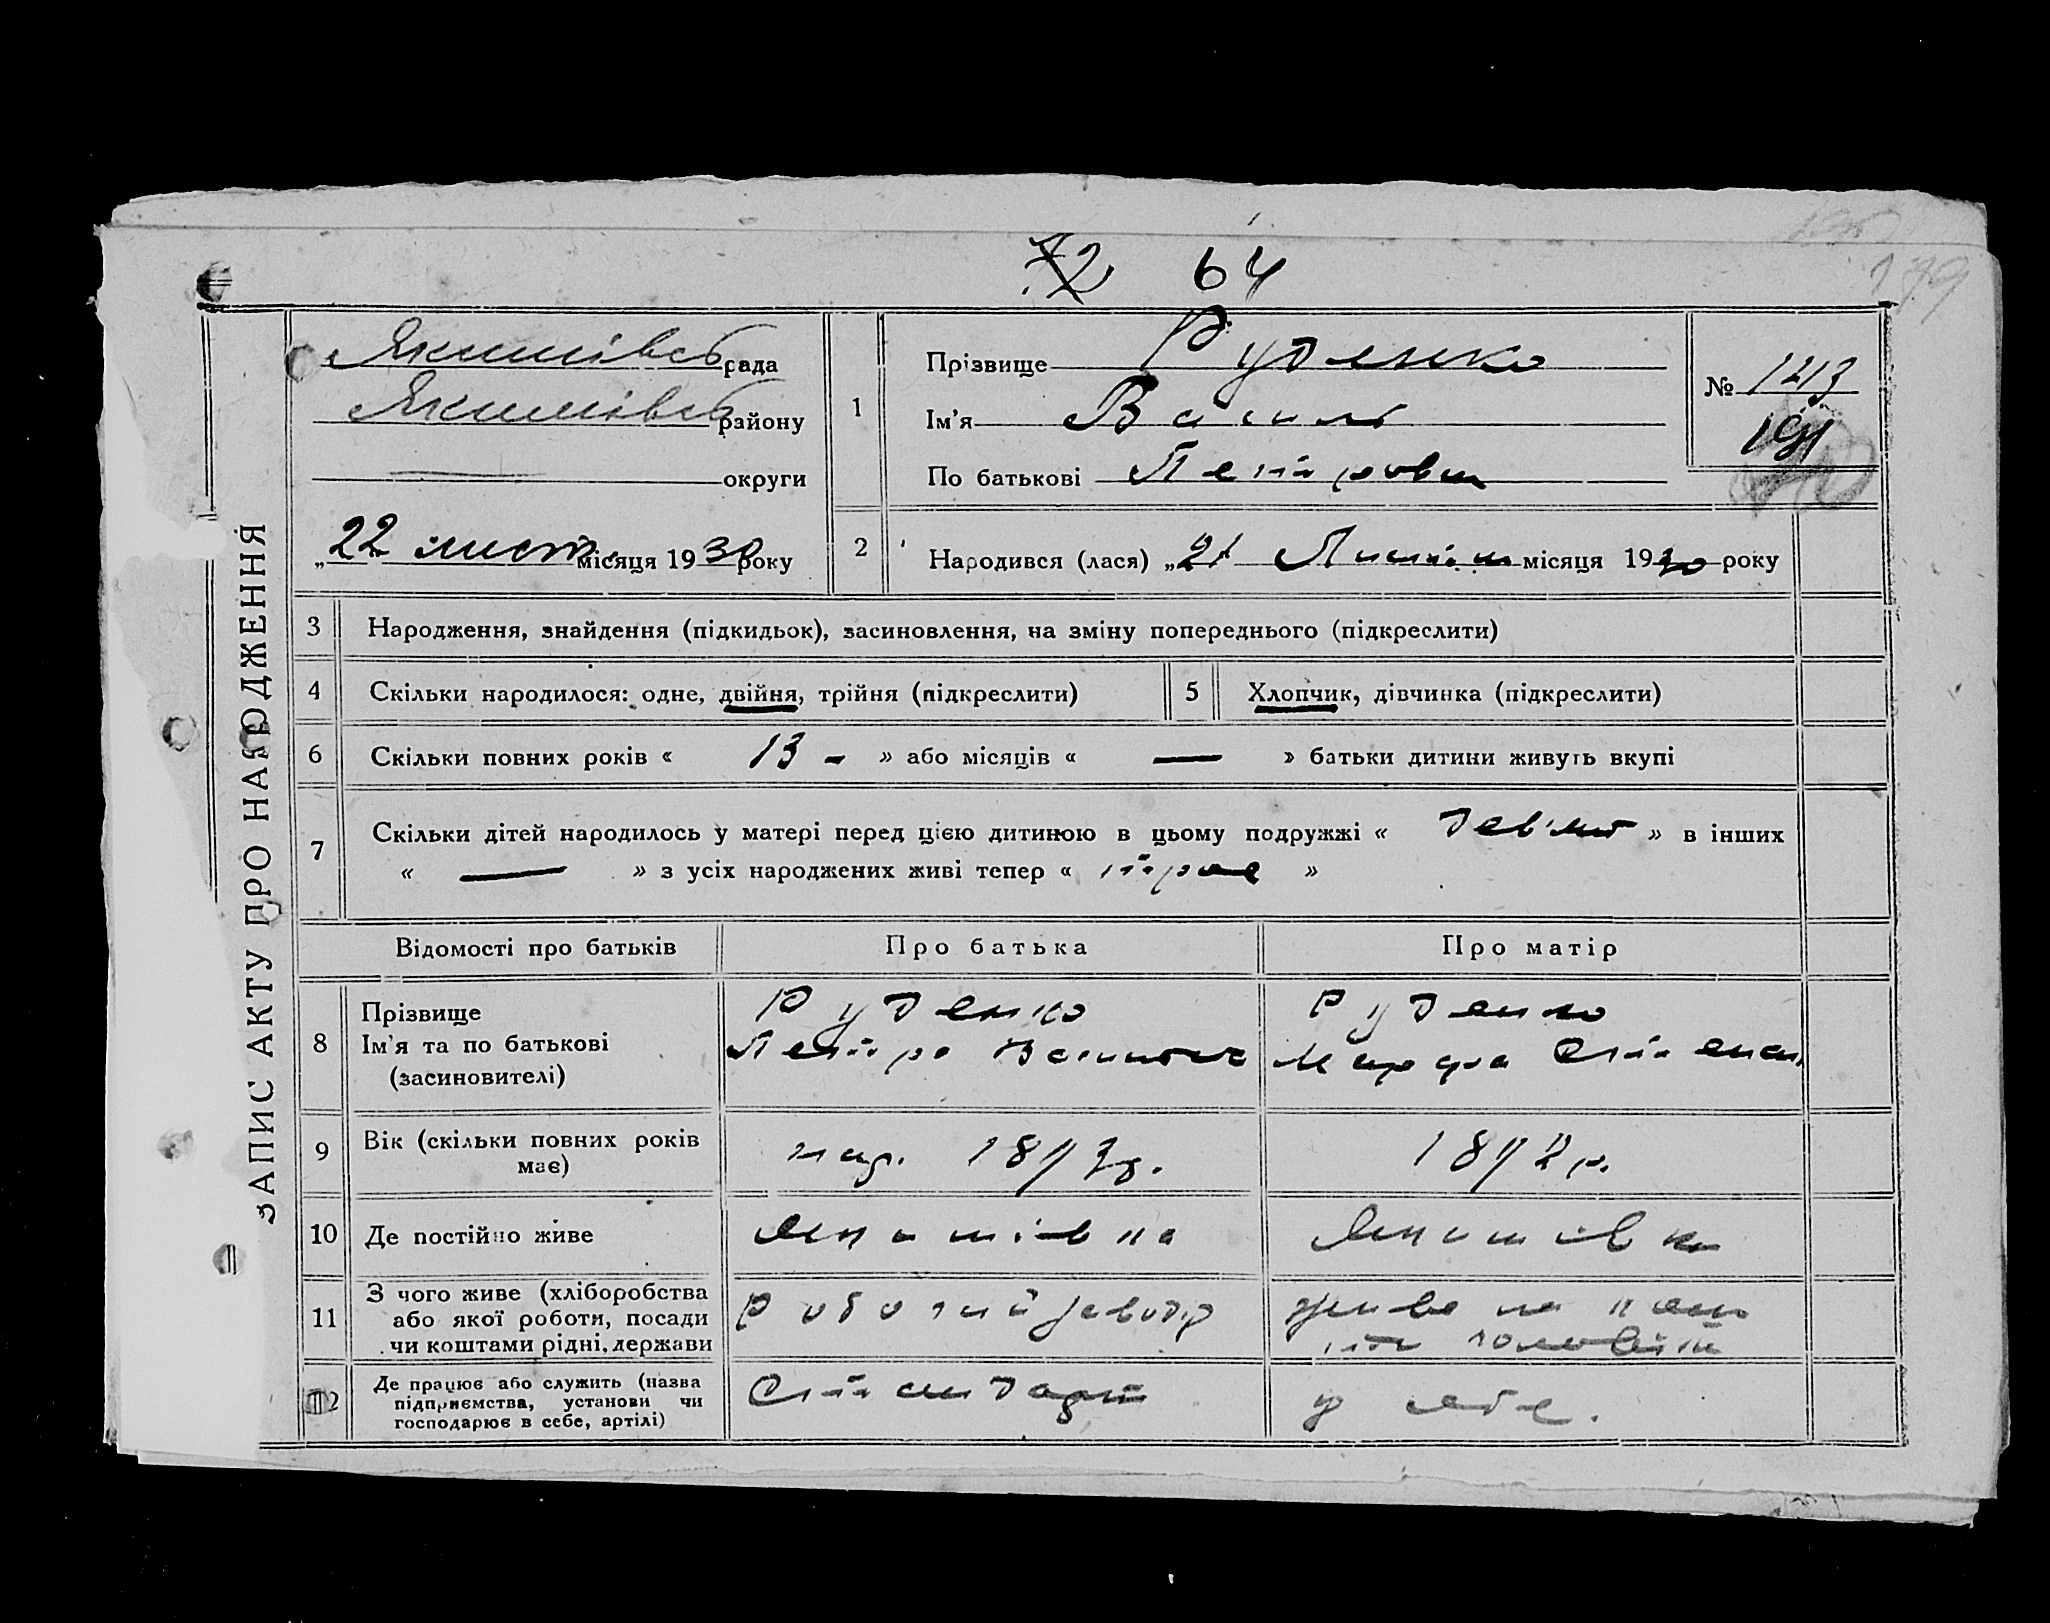 72 64
179
ЗАПИС АКТУ ПРО НАРОДЖЕННЯ
Якимівсь рада
Якимівсь району
округи
„22 лист. місяця 1930 року
1
Прізвище Руденко
Ім'я Василь
По батькові Петрович
№
191
2
Народився (лася) „21 Листоп місяця 1930 року
3 Народження, знайдення (підкидьок), засиновлення, на зміну попереднього (підкреслити)
4 Скільки народилося: одне, двійня, трійня (підкреслити) 5 Хлопчик, дівчинка (підкреслити)
6 Скільки повних років « 13 - » або місяців « — » батьки дитини живуть вкупі
7 Скільки дітей народилось у матері перед цією дитиною в цьому подружжі « девʼять » в інших
« — » з усіх народжених живі тепер « троє »
Відомості про батьків Про батька Про матір
8 Прізвище
Ім'я та по батькові
(засиновителі)
Руденко
Петро Васильов
Руденко
Марфа Степан
9 Вік (скільки повних років має)
нар.
10 Де постійно живе Якимівка Якимівка
11 З чого живе (хліборобства
або якої роботи, посади
чи коштами рідні, держави
Робочий
живе на
12 Де працює або служить (назва
підприємства, установи чи
господарює в себе, артілі)
Стандарт
у себе.